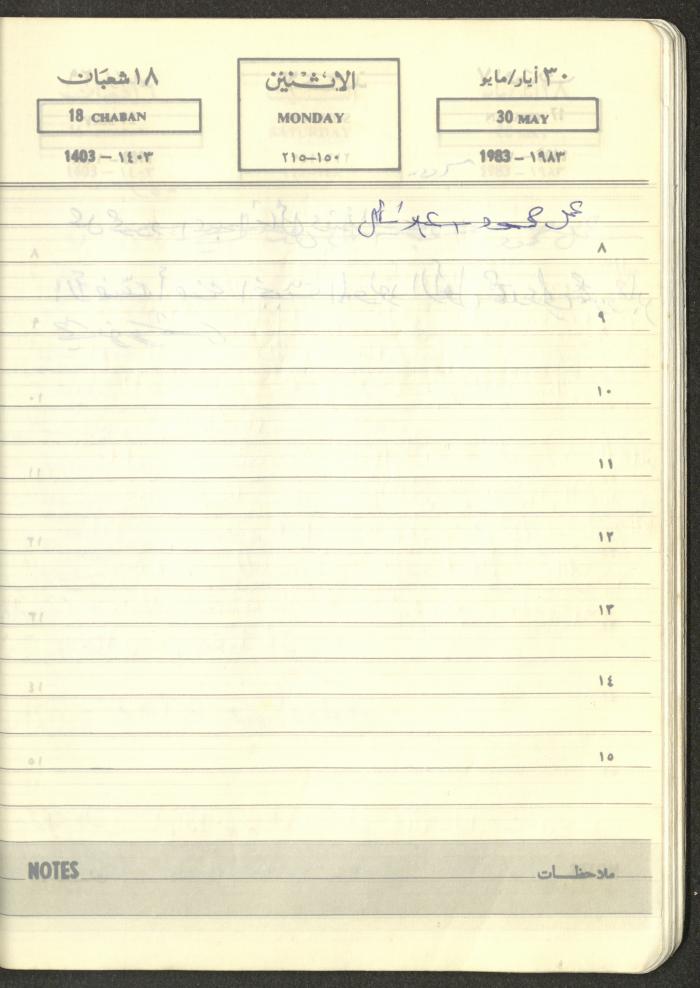 ١٨ شعبَان الاثنين ٣٠ أيار/مايو
18 CHABAN MONDAY 30 MAY
1403 - ١٤٠٣ ٢١٥-١٥٠ 1983 - ١٩٨٣
عمل
٨
٩
١٠
١١
١٢
١٣
١٤
١٥
NOTES ملاحظـات